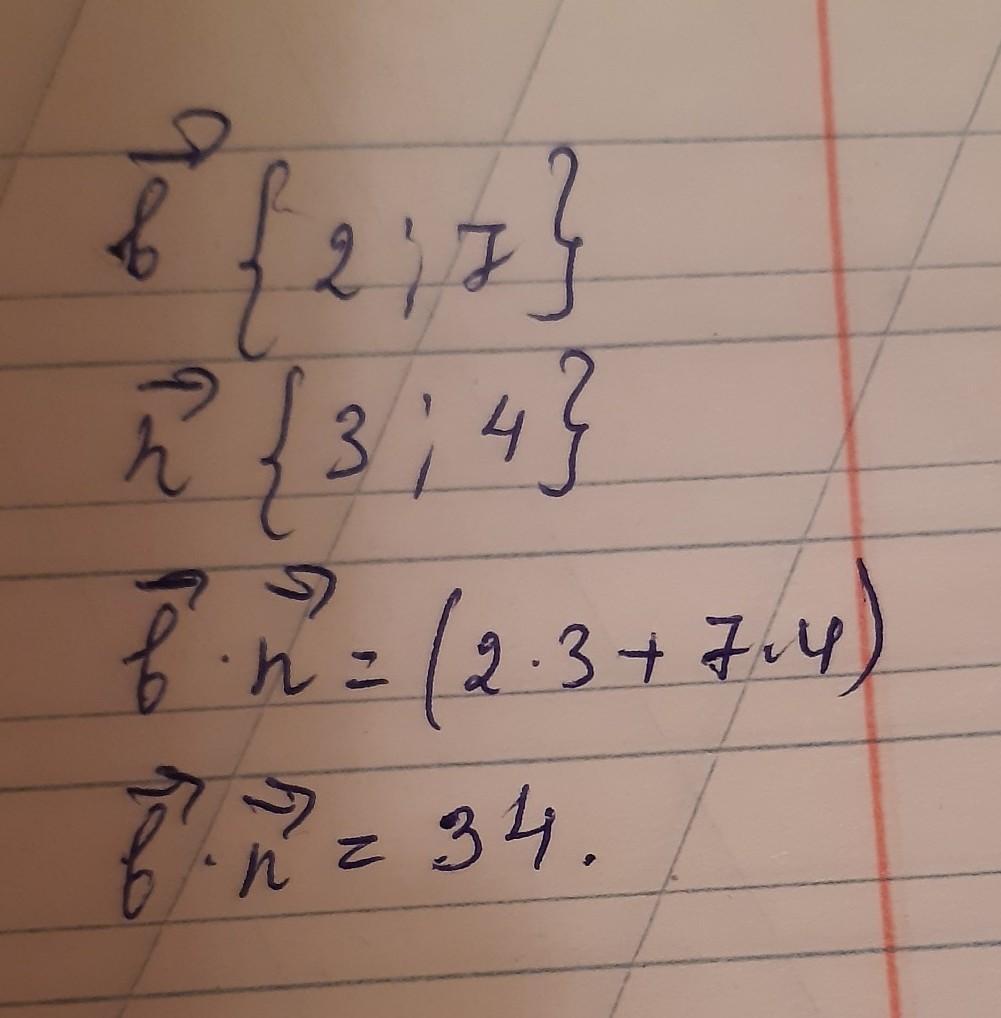 b⃗ { 2 ; 7 }
n⃗ { 3 ; 4 }
b⃗ · n⃗ = (2 · 3 + 7 · 4)
b⃗ · n⃗ = 34.